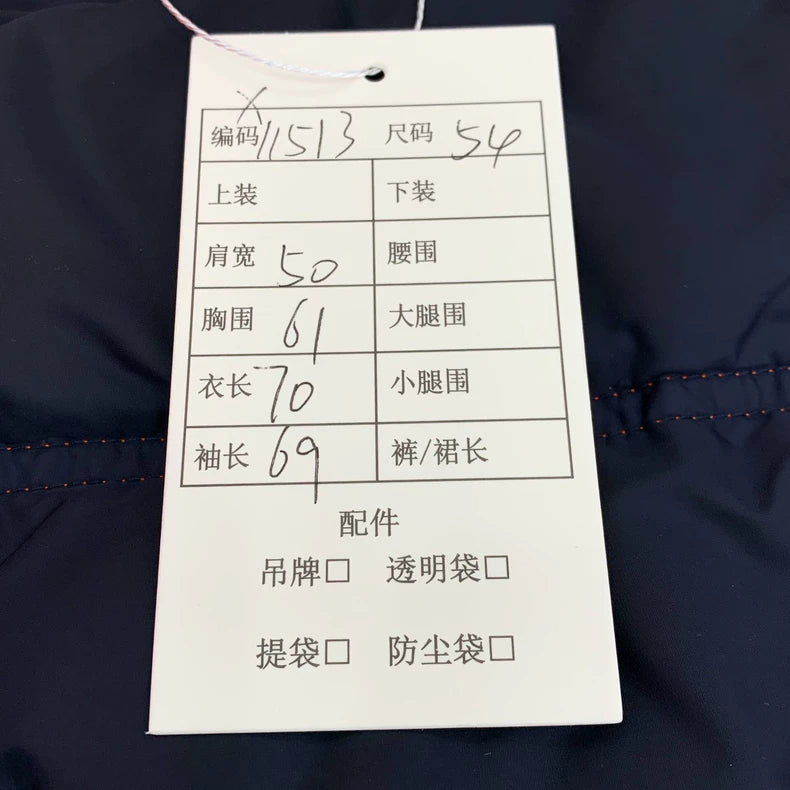 X
编码 11513 尺码 54
上装 下装
肩宽 50 腰围
胸围 61 大腿围
衣长 70 小腿围
袖长 69 裤/裙长
配件
吊牌□ 透明袋□
提袋□ 防尘袋□